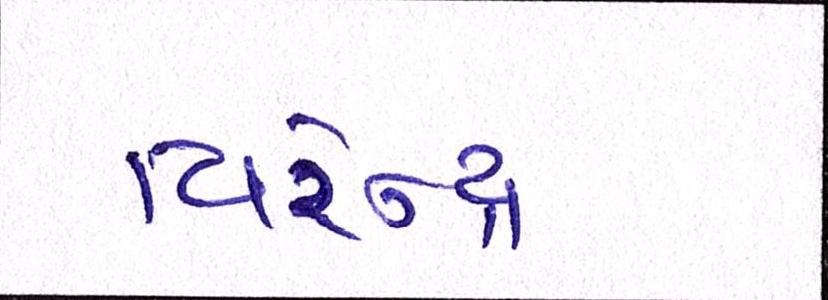 વિરેન્દ્ર